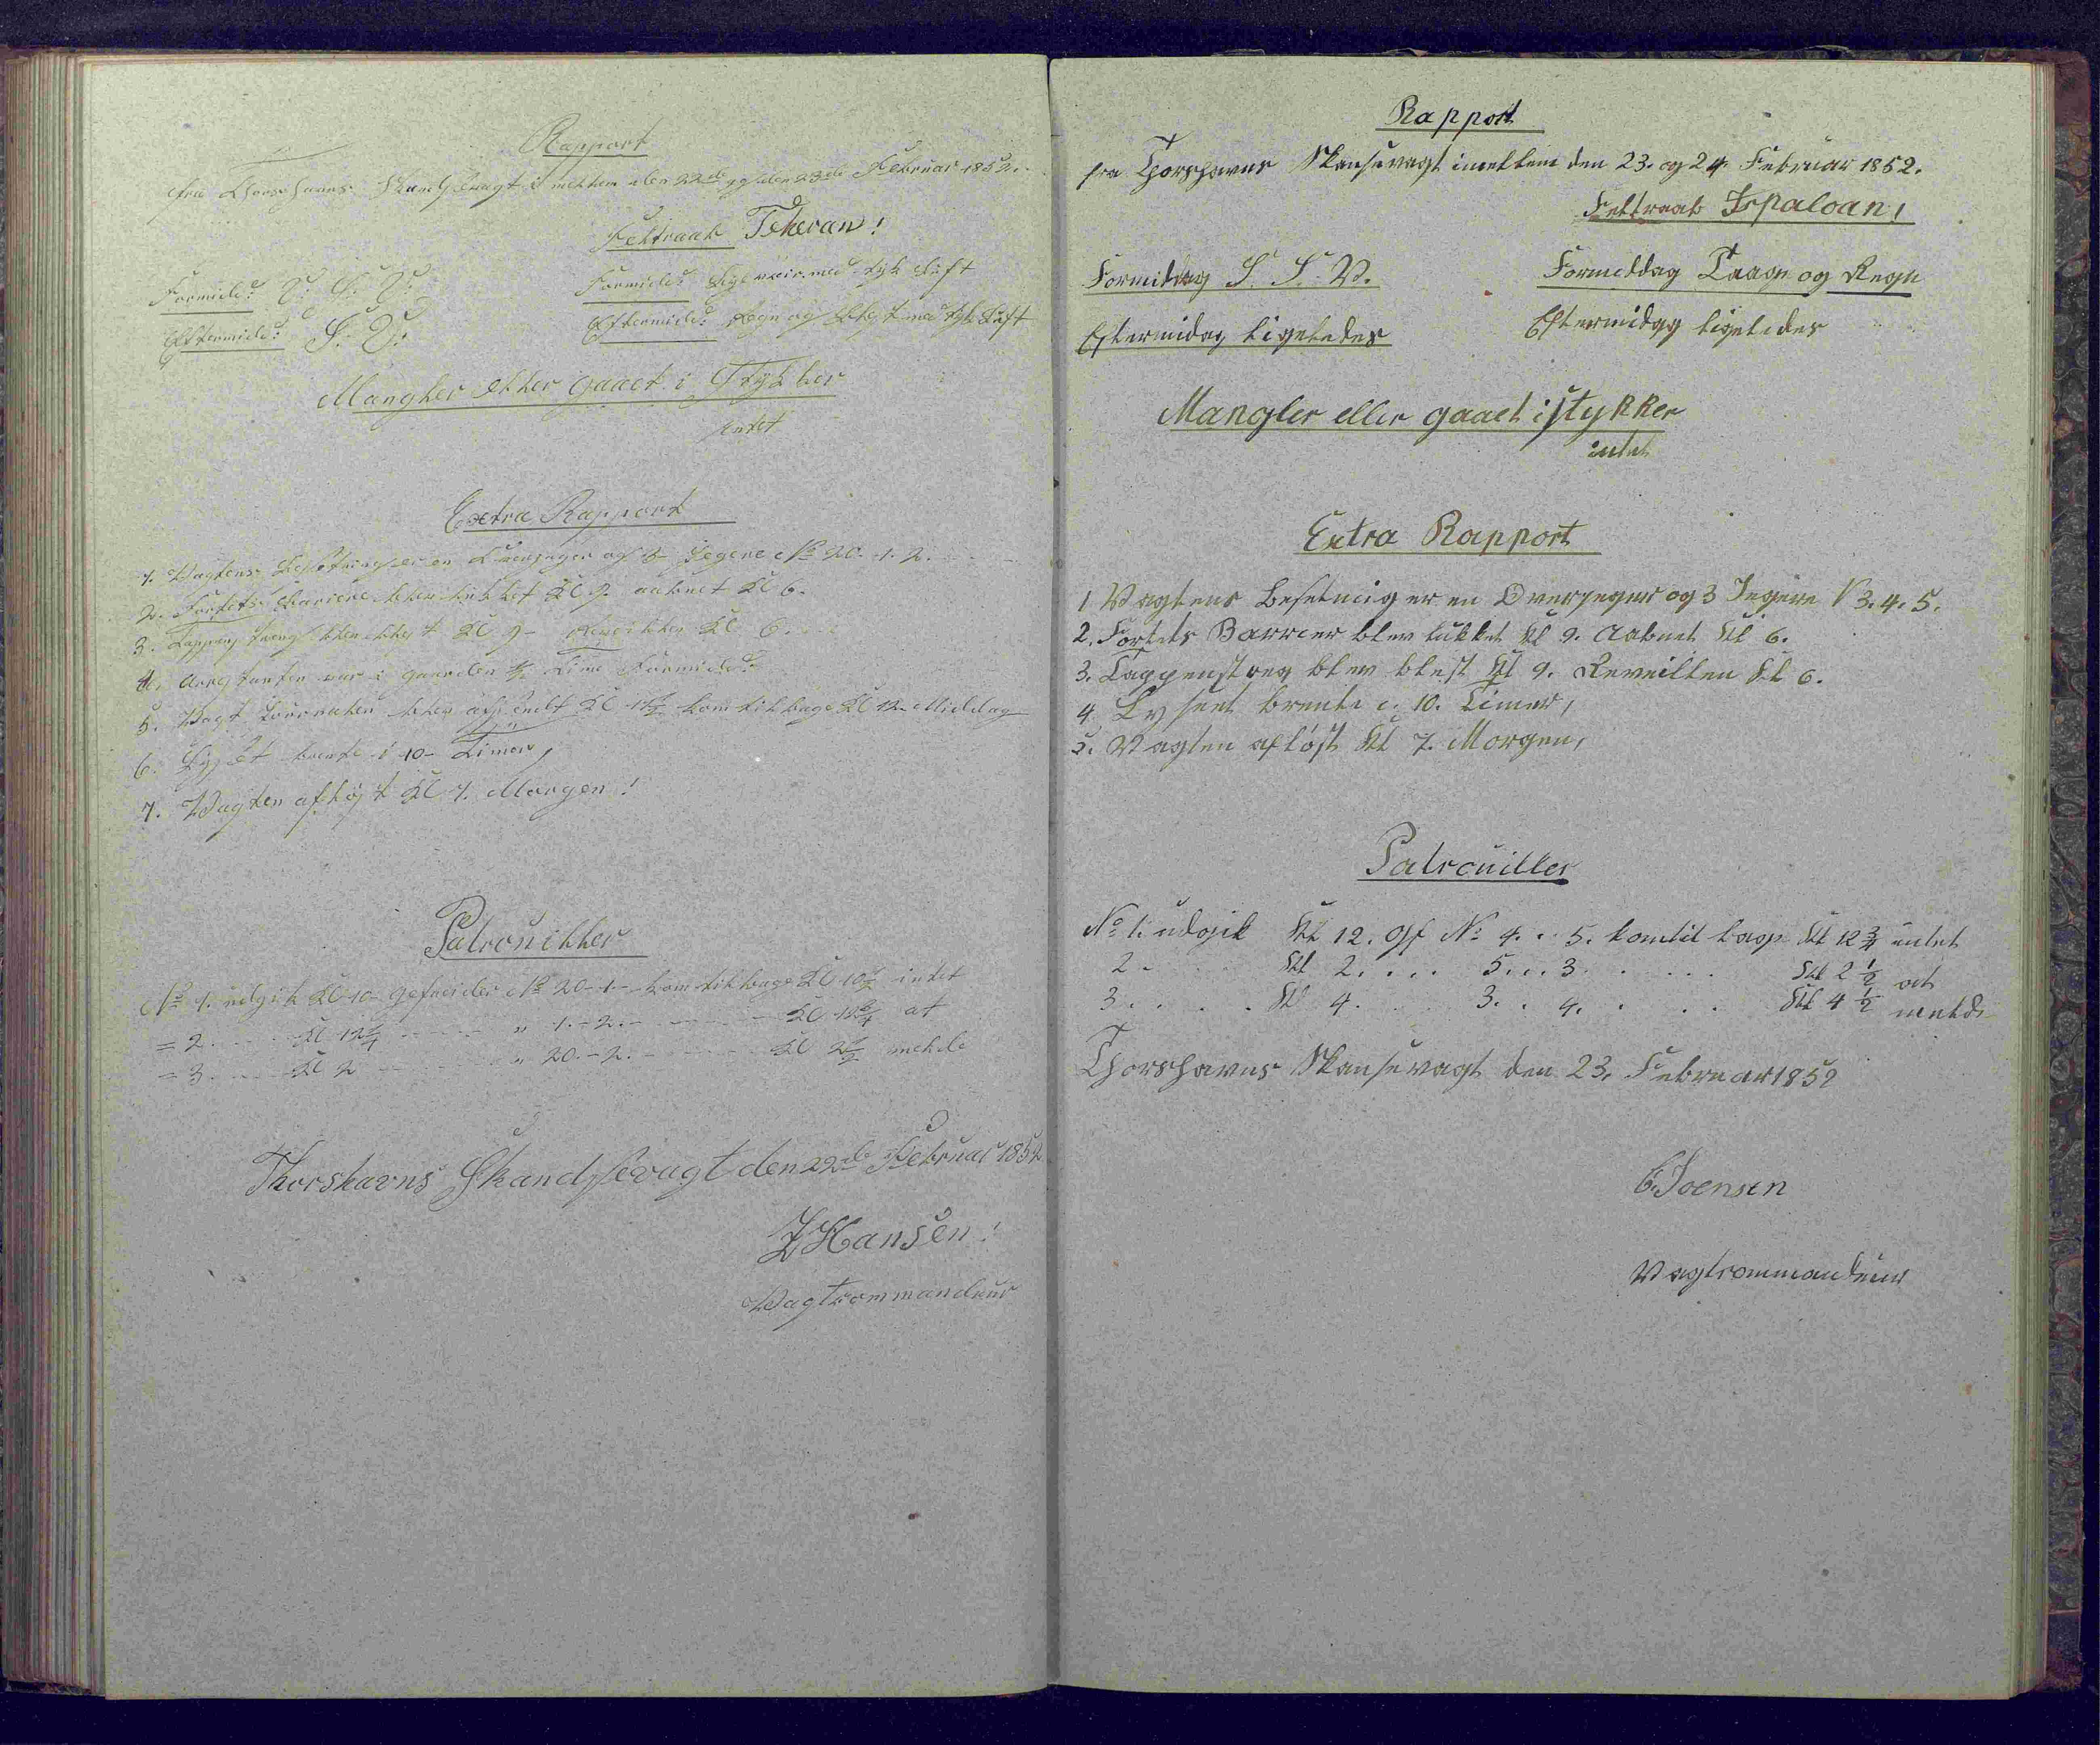 Rapport
fra Thorshavns Skandsevagt imellem den 22de og den 23de Februar 1852.
Feltraab Teheran!
Formidd: V. S. V.
Formidd: med tyk Luft
Eftermidd: S. V.
Eftermidd: Regn og med tyk Luft
Mangler eller gaaet i Stykker
intet
Extra Rapport
1. Vagtens Besetning er en Overjeger og 3 Jegere No 20. 1. 2.
2. Fortets Bariere blev lukket Kl 9. aabnet Kl 6.
3. Tappenstreg blev blest Kl 9 Reveillen Kl 6.
4. Arrestanten var i gaarden ½ Time Formidd:
5. Vagt Journalen blev afsendt Kl 11½ kom tilbage Kl 12 Middag
6. Lyset brente i 10 Timer,
7. Vagten afløst Kl 7. Morgen!
Patrouiller
No 1. udgik Kl 10 Gefreider No 20-1- kom tilbage Kl 10½ intet
= 2. Kl 12¼ " 1.-2. Kl 12¾ at
= 3. Kl 2 " 20.-2. Kl 2½ melde
Thorshavns Skandsevagt den 22de Februar 1852
Z Hansen!
Vagtcommandeur
Rapport
fra Thorshavns Skansevagt imellem den 23. og 24 Februar 1852.
Feltraab Ispaloan,
Formiddag S. S. V.
Formiddag Taage og Regn
Eftermidag ligeledes
Eftermidag ligeledes
Mangler eller gaaet istykker
intet
Extra Rapport
1 Vagtens Besetning er en Overjeger og 3 Jegere N 3. 4. 5.
2. Fortets Barrier blev lukket Kl 9. Aabnet Kl 6.
3. Tappenstreg blev blest Kl 9. Reveillen Kl 6.
4. Lyset brente i. 10. Timer,
5. Vagten afløst Kl 7. Morgen,
Patrouiller
No 1. udgik Kl 12. Gf No 4. . 5. kom til bage Kl 12 ¾ intet
2. . . . Kl 2. . . . 5. . . 3. . . . . Kl 2 ½ at
3. . . . . Kl 4. . . . 3. . 4. . . . Kl 4 ½ melde
Thorshavns Skansevagt den 23. Februar 1852
C. Joensen
Vagtcommandeur